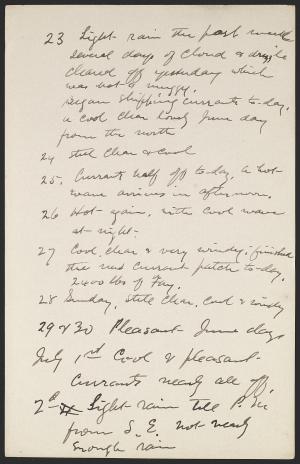 23 Light rain the past week
several days of cloud & drizzle
cleared off yesterday which
was hot & muggy.
Began shipping currants to-day.
a cool clear lovely June day
from the north
24 still clear & cool
25. Currants half off to-day, a hot-
wave arrives in afternoon.
26 Hot- again, with cool wave
at- night-
27 Cool, clear & very windy; finished
the red currant patch to-day.
2400 lbs of Fay.
28 Sunday, still clear, cool & windy
29 & 30 Pleasant June days
July 1st Cool & pleasant-
Currants nearly all off.
2d Light- rain till P. M.
from S. E. not- nearly
enough rain